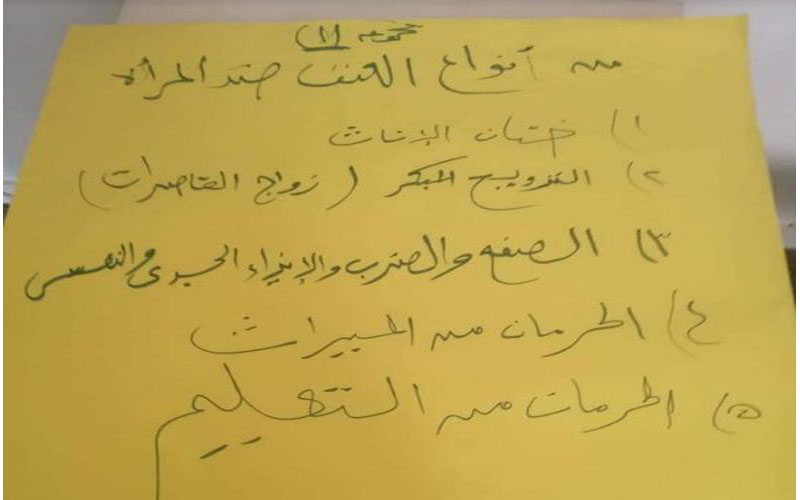 مجموعه (1)
من أنواع العنف ضد المرأة
1) ختان الإناث
2) التزويج المبكر (زواج القاصرات)
3) الصفع والضرب والإيذاء الجسدى والنفسى
4) الحرمان من الميراث
5) الحرمان من التعليم